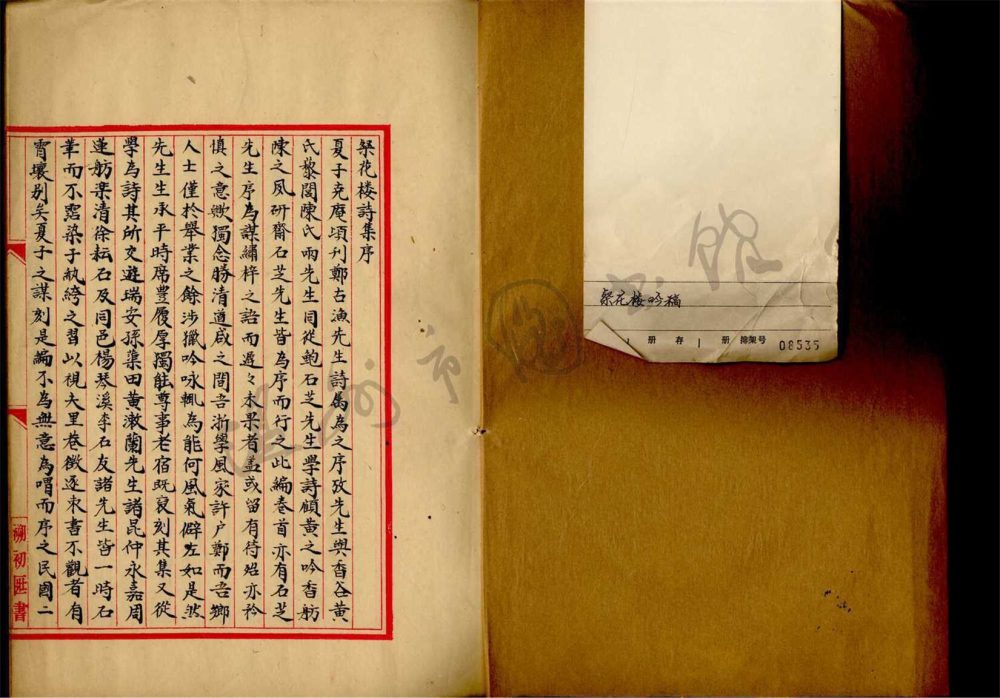 琹花楼詩集序
夏子克庵頃刋鄭古漁先生詩属為之序攷先生與香谷黄
氏黎閣陳氏兩先生同從鮑石芝先生學詩顧黄之吟香舫
陳之風研齋石芝先生皆為序而行之此編卷首亦有石芝
先生序為謀繡梓之語而遅々未果者盖或留有待焰亦矜
慎之意歟獨念勝清道咸之間吾浙學風家許户鄭而吾鄉
人士僅於舉業之餘涉獵吟咏輒為能何風氣僻左如是然
先生生承平時席豊履厚獨能尊事老宿既裒刻其集又從
學為詩其所交遊瑞安孫琹田黄漱蘭先生諸昆仲永嘉周
蓮舫楽清徐耘石及同邑楊琴溪李石友諸先生皆一時石
筆而不霑染子紈綺之習以視大里巷徴逐束書不觀者有
霄壤别矣夏子之謀刻是編不為無意為喟而序之民國二
朔初匯書
琹花楼吟稿
册 存 册 排架号 08535
温州市图书馆